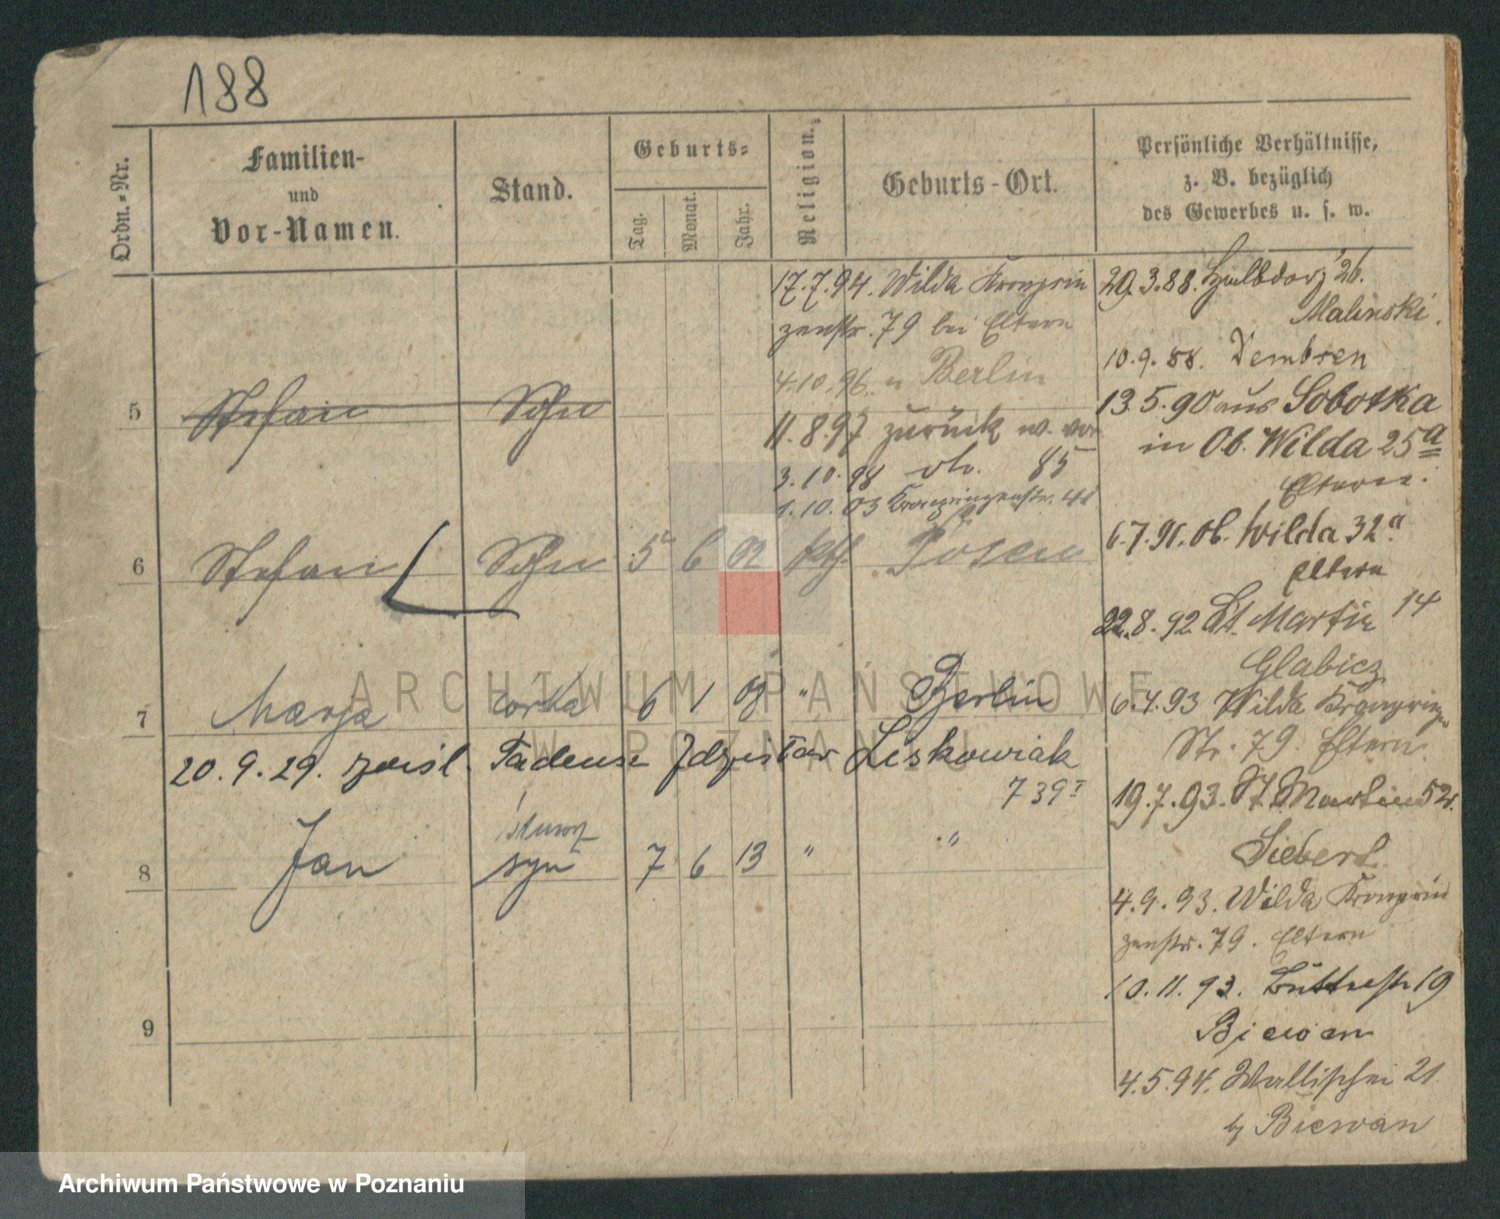 188
Ordn.-Nr.
Familien-
und
Vor-Namen.
Stand.
Geburts-
Tag.
Monat.
Jahr.
Religion.
Geburts-Ort.
Persönliche Verhältnisse,
z. B. bezüglich
des Gewerbes u. s. w.
17.7.94. Wilda Kronprin
zenstr. 79 bei Eltern
4.10.96. n Berlin
11.8.97 zurück w. vor
3.10.98 do. 85
1.10.03 Kronprinzenstr.
5 Stefan Sohn
6 Stefan Sohn 5 6 02 kth Posen
7 Marja corka 6 1 09 " Berlin
20.9.29. Tadeusz Zdzisław Leskowiak
739 I
8 Jan syn 7 6 13 " "
9
29.3.88. Halbdorf 26.
Malinski.
10.9.88. Dembsen
13.5.90 aus Sobotka
in Ob. Wilda 25a
Eltern.
6.7.91. Ob. Wilda 32a
Eltern
22.8.92 St. Martin 14
Glabicz
6.4.93 Wilda Kronprinz
Str. 79. Eltern
19.7.93. St Martin 52.
Siebert
4.9.93. Wilda Kronprin
zenstr. 79. Eltern
10.11.93. Büttelstr 19
Biewan
4.5.94. Wallischei 21
b Biewan
ARCHIWUM PAŃSTWOWE
W POZNANIU
Archiwum Państwowe w Poznaniu